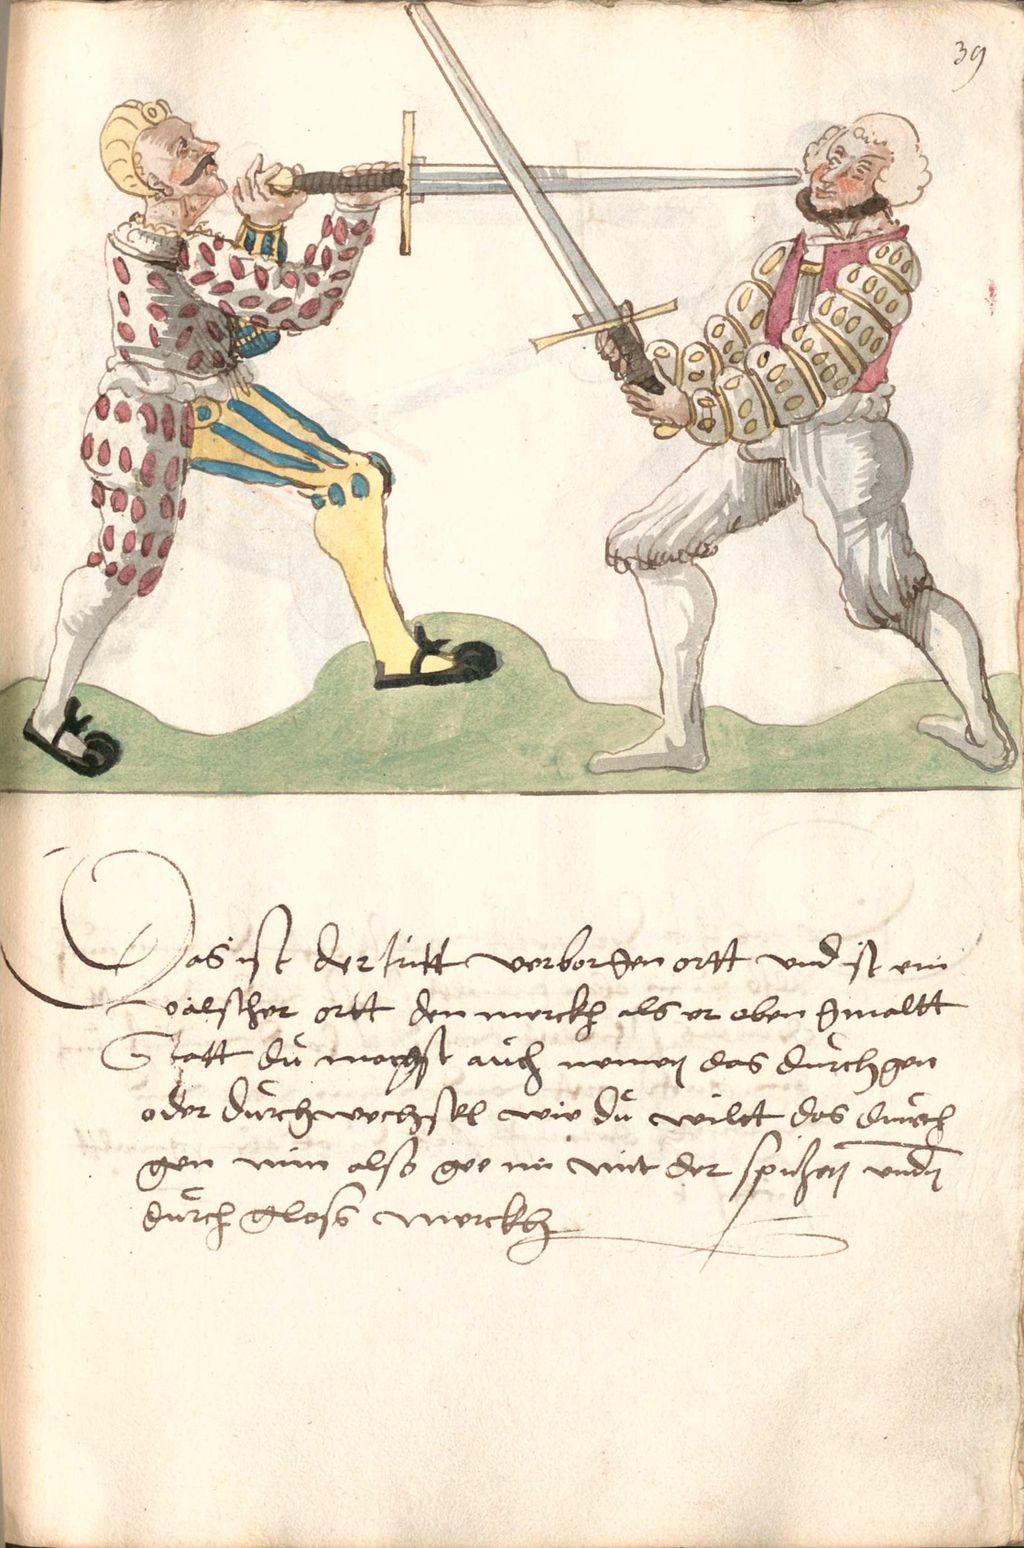 39
Das ist der tritt verborgen ortt und ist ein
valscher ortt den merckh als er oben gmaltt
Statt dů magst aůch nemen das dúrchgen
oder dúrchwechsel wie dů wilct das dúrch
gen nim also gee im mit der spitzen unden
dúrch gloss merckh